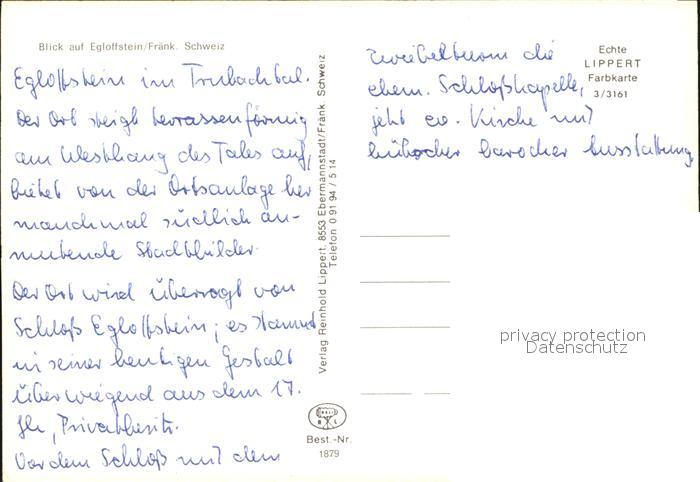 Blick auf Egloffstein/Fränk. Schweiz
Egloffstein im Trubachtal.
Der Ort steigt terrassenförmig
am Westhang des Tales auf,
bietet von der Ortsanlage her
manchmal südlich an-
mutende Stadtbilder.
Der Ort wird überragt von
Schloß Egloffstein; es stammt
in seiner heutigen Gestalt
überwiegend aus dem 17.
Jh, Privatbesitz.
Vor dem Schloß mit dem
Verlag Reinhold Lippert, 8553 Ebermannstadt/Fränk. Schweiz
Telefon 0 91 94 / 5 14
Best.-Nr.
1879
Zwiebelturm die
ehem. Schloßkapelle,
jetzt ev. Kirche mit
hübscher barocher Ausstattung
Echte
LIPPERT
Farbkarte
3/3161
privacy protection
Datenschutz